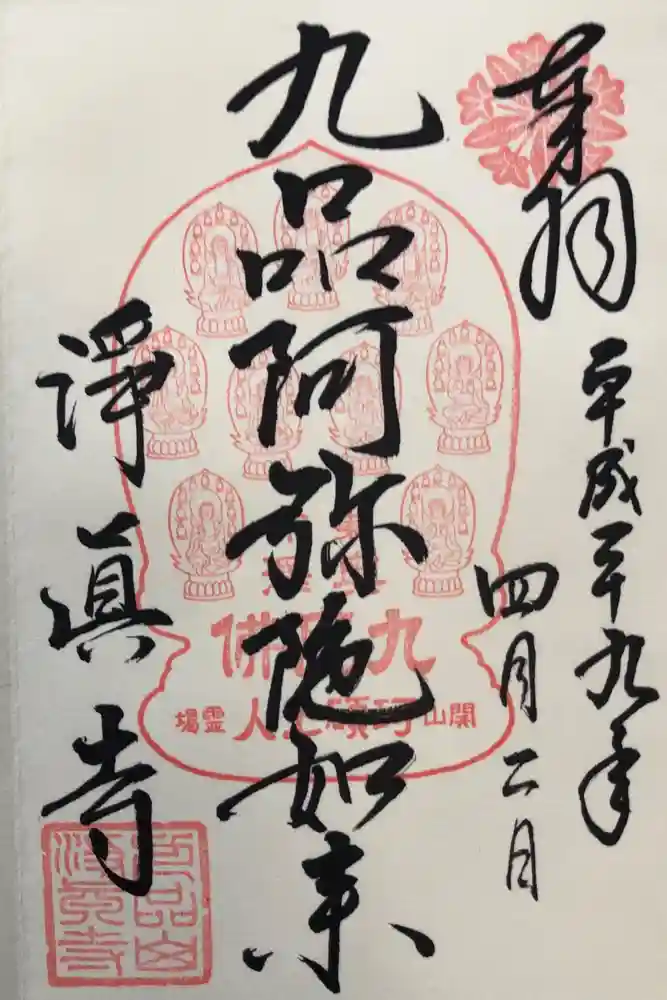 奉拝
平成二十九年
四月二日
九品阿弥陀如来
淨眞寺
九品佛
開山珂碩上人霊場
九品山
淨眞寺